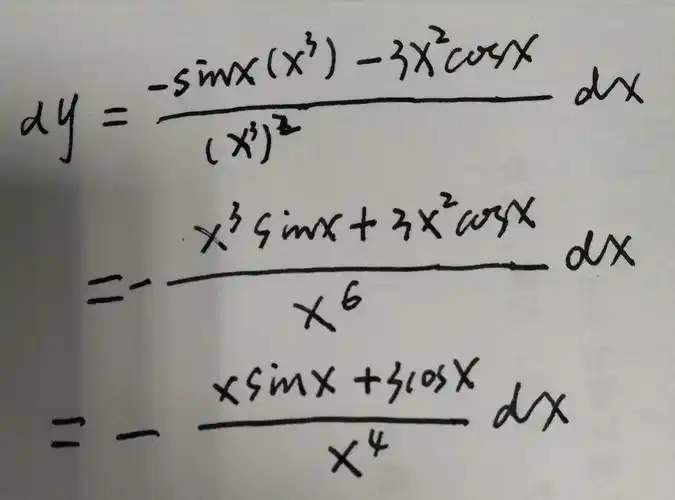 dy = \frac{-sinx(x^3) - 3x^2cosx}{(x^3)^2} dx
= - \frac{x^3 sinx + 3x^2cosx}{x^6} dx
= - \frac{xsinx + 3cosx}{x^4} dx